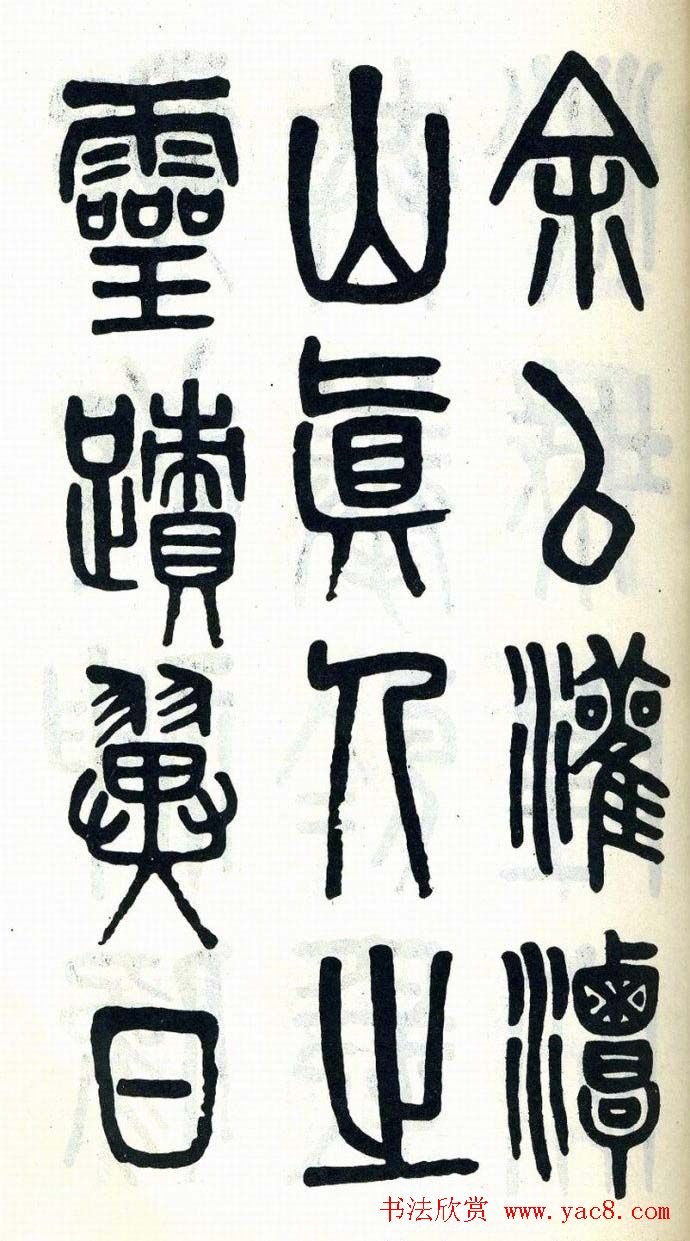 余以灌潭
山眞人之
靈蹟翼日
书法欣赏 www.yac8.com